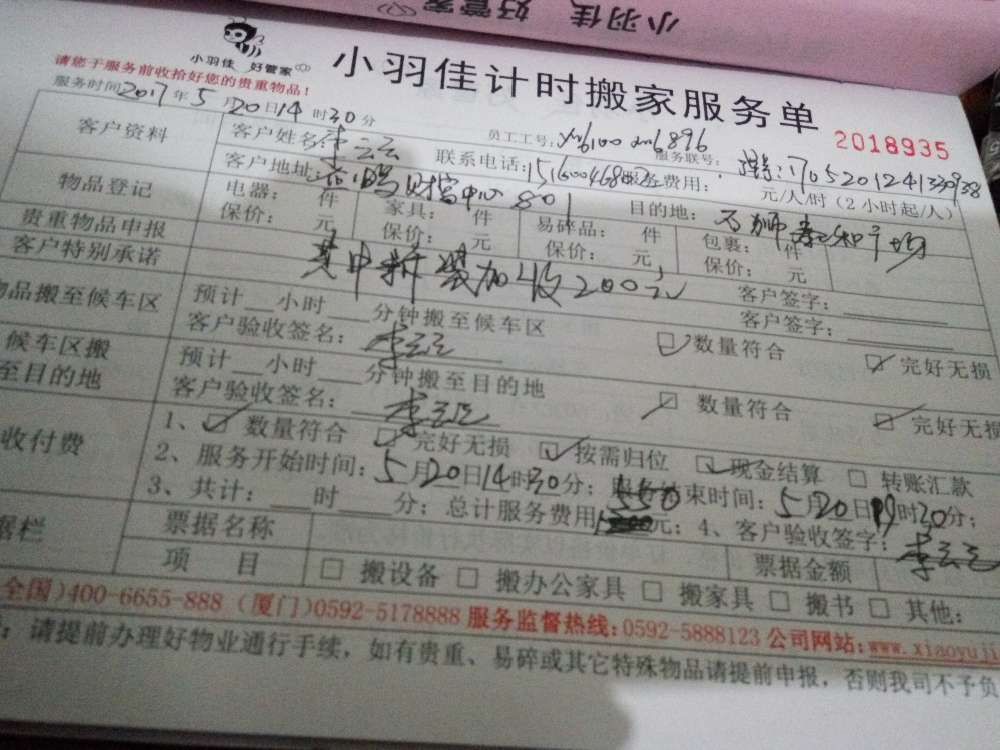 小羽佳 好管家
小羽佳 好管家
小羽佳计时搬家服务单
请您于服务前收拾好您的贵重物品!
服务时间2017年5月20日14时30分
员工工号:
服务联号:
2018935
客户资料
客户姓名:李云云
联系电话:
服务费用: 元/人/时(2小时起/人)
1705201241330938
客户地址: 中心801
目的地:
物品登记
电器: 件 家具: 件 易碎品: 件 包裹: 件
贵重物品申报
保价: 元 保价: 元 保价: 元, 保价: 元
客户特别承诺
其中拆装加收200元
客户签字:
物品搬至候车区
预计 小时 分钟搬至候车区
客户签字:
客户验收签名:李云云
数量符合 完好无损
候车区搬
至目的地
预计 小时 分钟搬至目的地
客户验收签名:李云云
数量符合 完好无损
收付费
1、 数量符合 完好无损 按需归位 现金结算 转账汇款
2、服务开始时间:5月20日14时30分; 服务结束时间:5月20日19时30分;
3、共计: 时 分; 总计服务费用 550 元; 4、客户验收签字:李云云
据栏
票据名称
票据金额
项 目
□ 搬设备 □ 搬办公家具 □ 搬家具 □ 搬书 □ 其他:
全国)400-6655-888 (厦门)0592-5178888 服务监督热线:0592-5888123 公司网站:www.xiaoyuji
:请提前办理好物业通行手续,如有贵重、易碎或其它特殊物品请提前申报,否则我司不予负